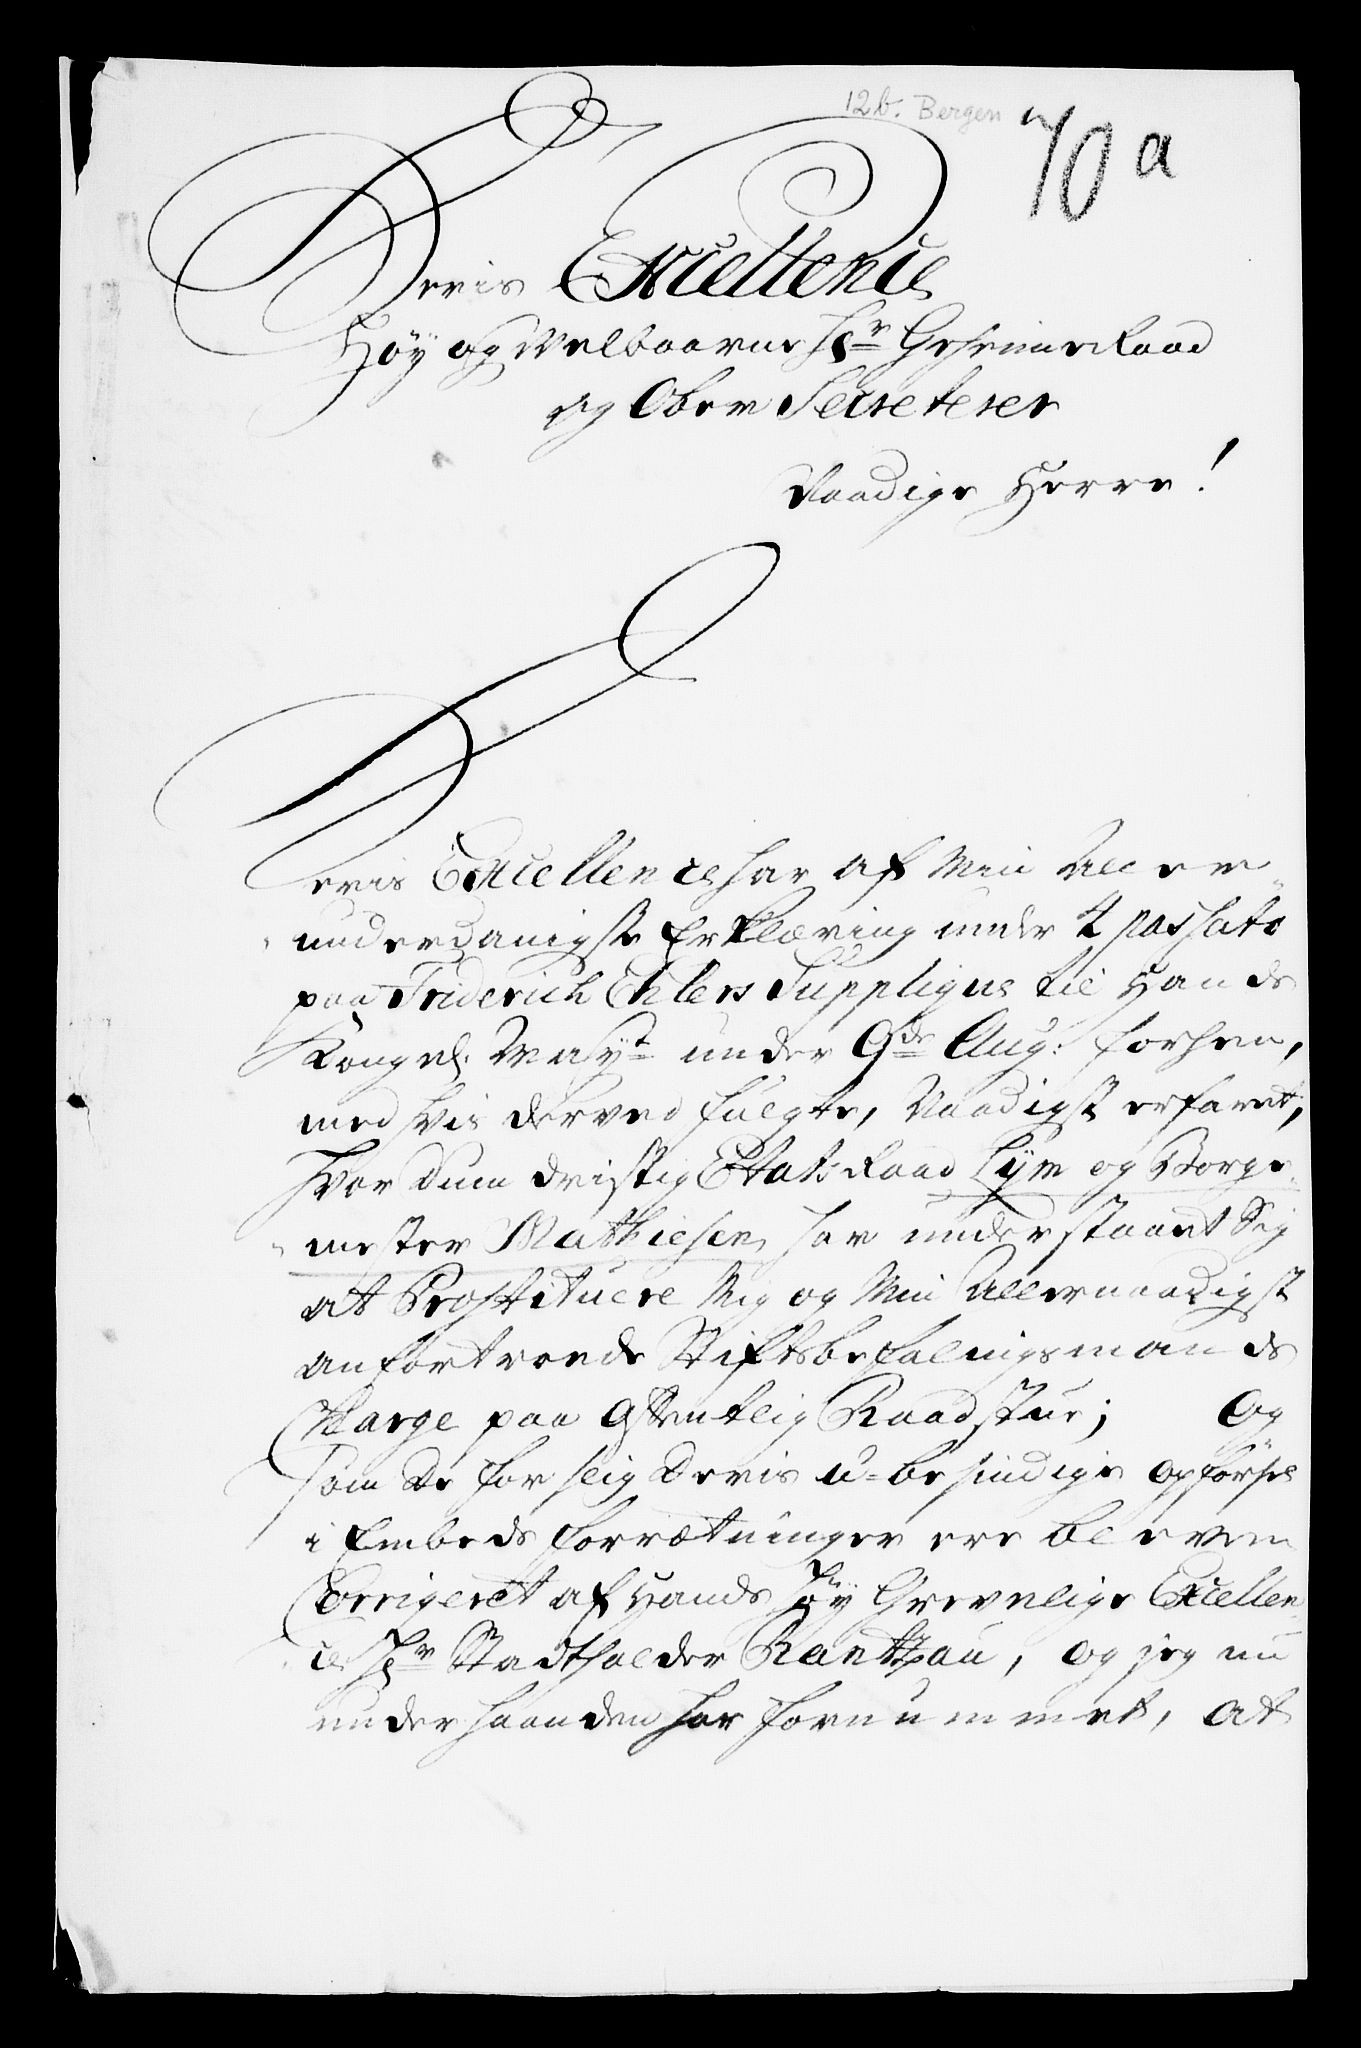 12b. Bergen
70 a
Deris Excellence
Høy og Welbaarne Hr Geheime Raad
og Ober Secreterer
Naadige Herre!
Deris Excellence har af Min Aller-
underdanigste Erklæring under 2 passato
paa Friderich Ehlers Supplique til Hands
Kongel. Mayt under 9de Aug: forhen,
med hvis derved fulgte, Naadigst erfaret,
hvor dum dristig Etats Raad Lÿm og Borge-
mester Mathiesen har understaaet Sig
at Prostituere Mig og Min Allernaadigst
anfortroede Stiftsbefalingsmands
Charge paa Offentlig Raadstue; Og
som De for slig Deris u-besindige Opførsel
i Embeds forrætninger ere bleven
Corrigeret af Hands Høy Grevelige Excellen-
ce Hr Stadtholder Rantzau, og jeg nu
underhaanden har fornummet, at